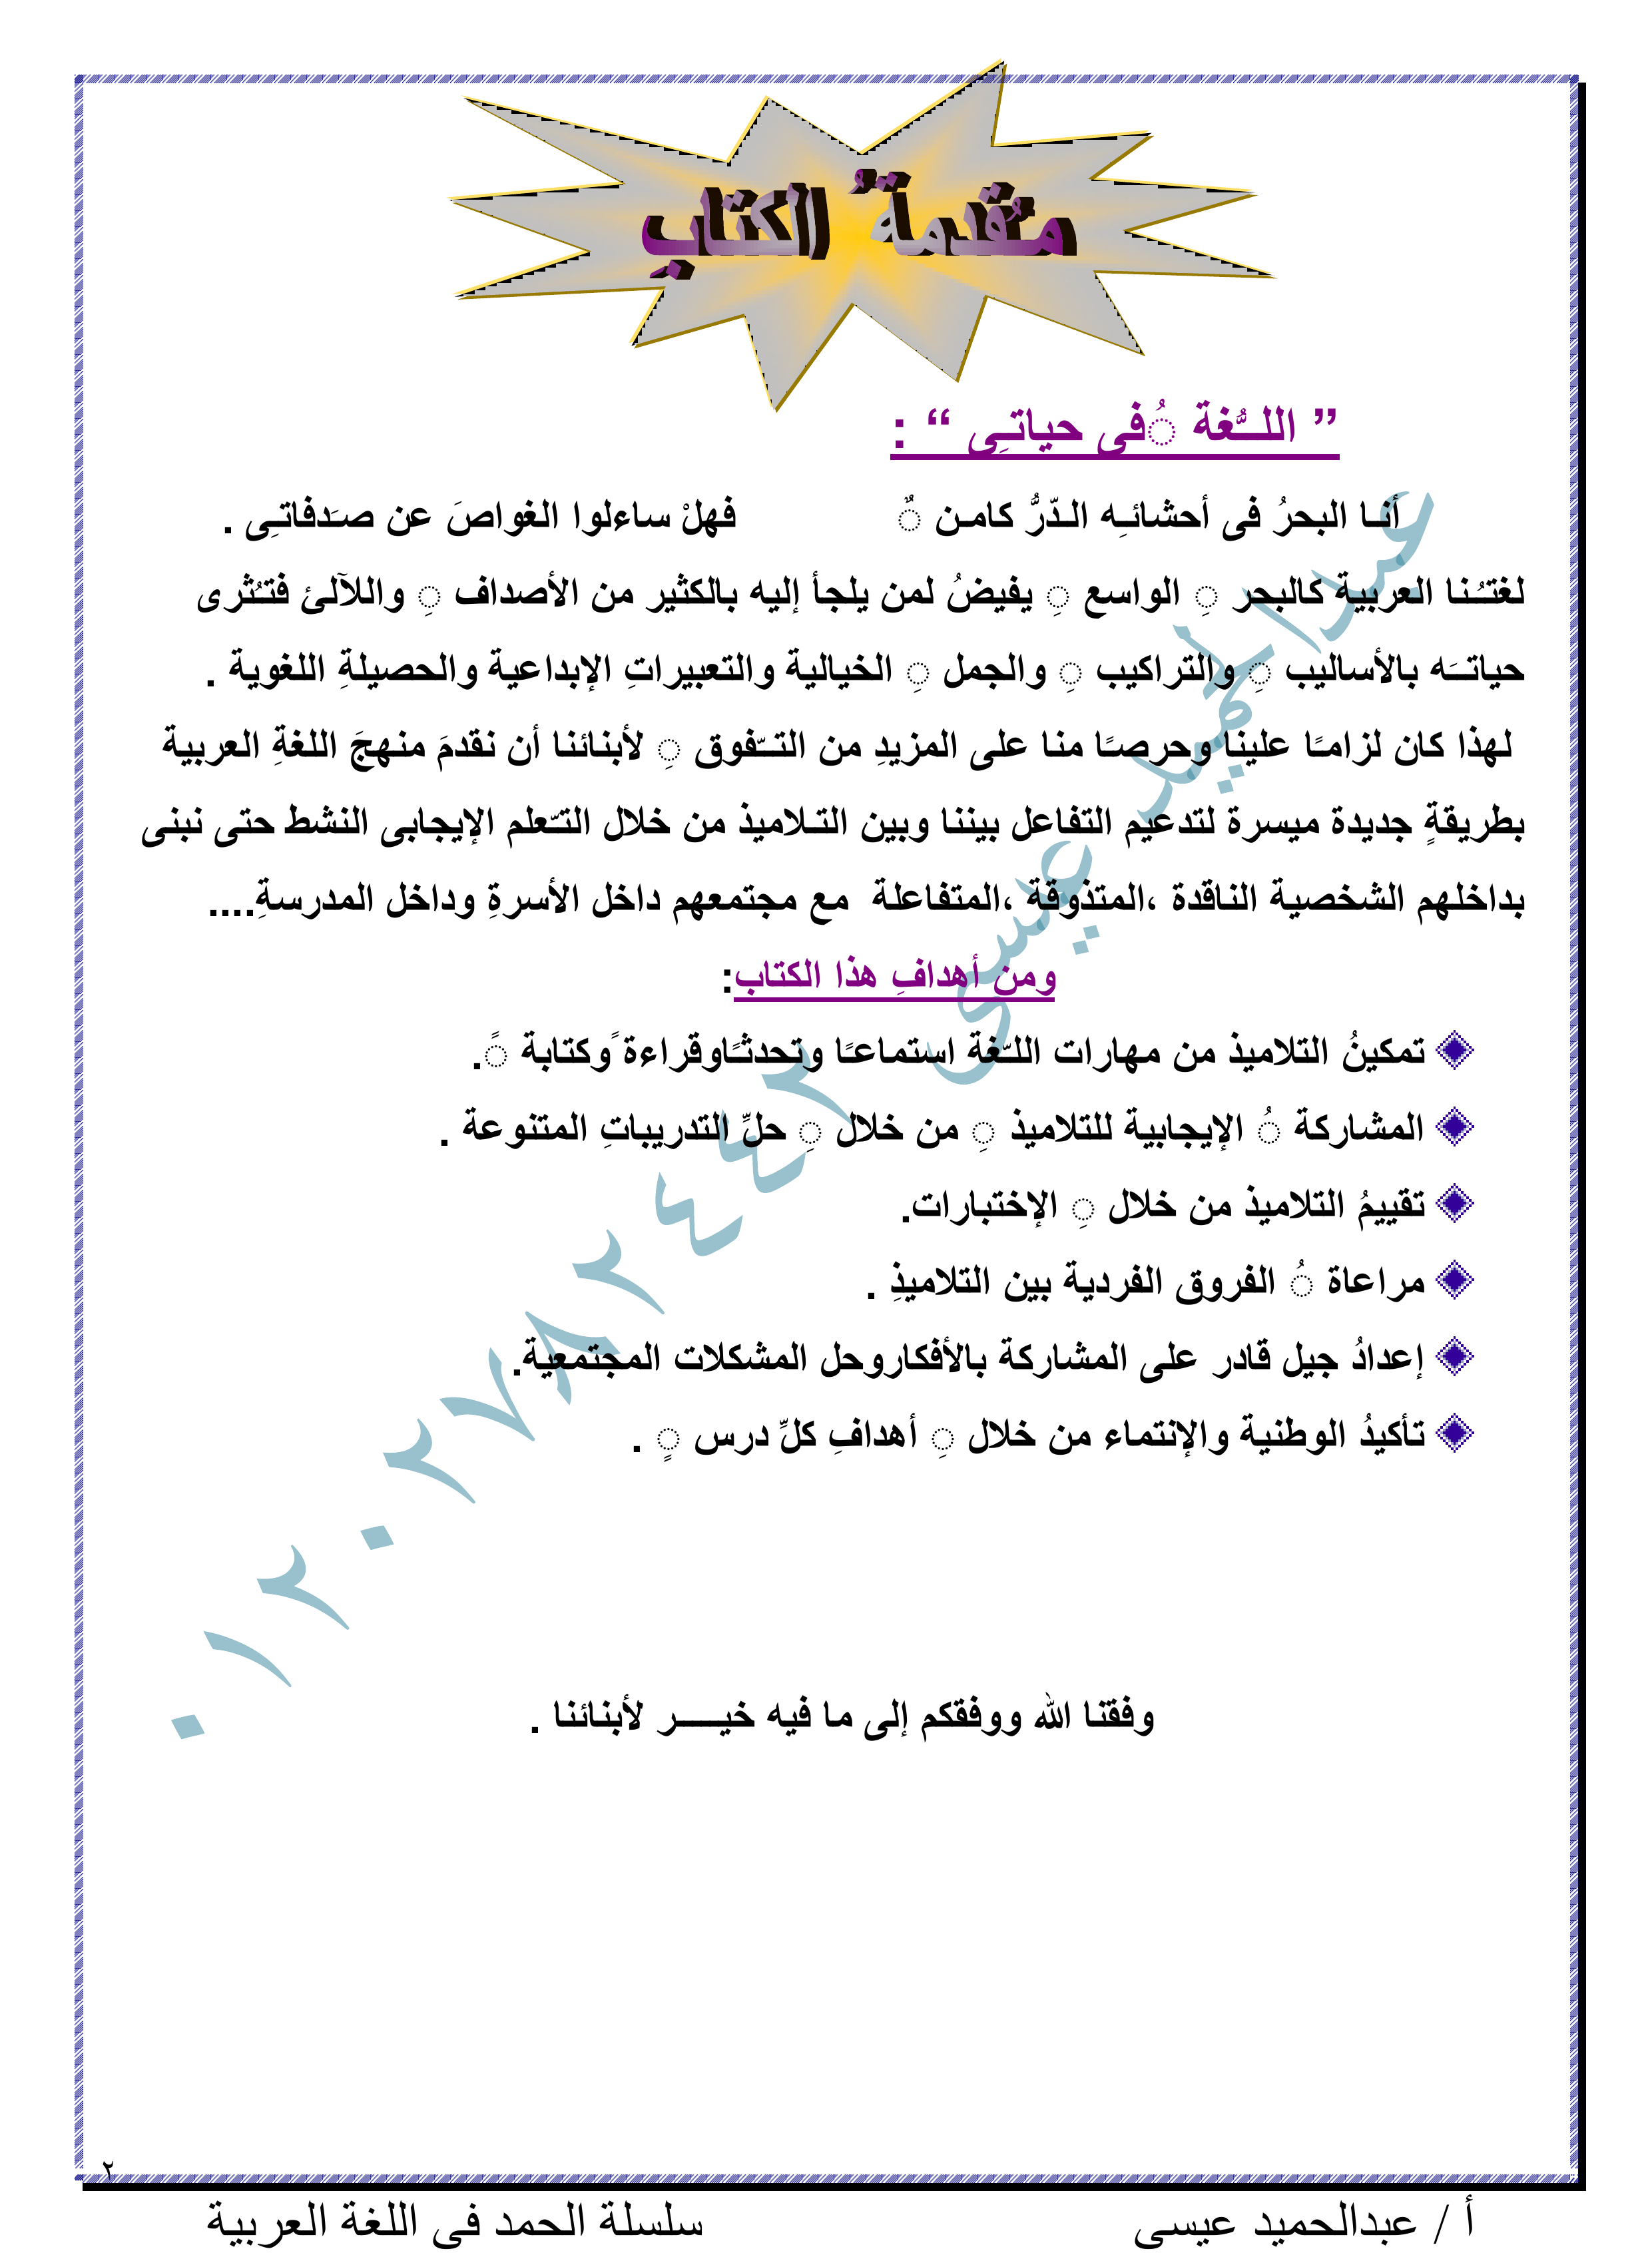 مُقدمةُ الكتابِ
” اللـُّغة ُفى حياتـِى “ :
أنـا البحرُ فى أحشائـِه الـدّرُّ كامـن ٌ فهلْ ساءلوا الغواصَ عن صـَدفاتـِى .
لغتـُنا العربية كالبحر ِ الواسع ِ يفيضُ لمن يلجأ إليه بالكثير من الأصداف ِ واللآلئ فتـُثرى
حياتـَه بالأساليب ِ والتراكيب ِ والجمل ِ الخيالية والتعبيراتِ الإبداعية والحصيلةِ اللغوية .
لهذا كان لزامـًا علينا وحرصـًا منا على المزيدِ من التـّفوق ِ لأبنائنا أن نقدمَ منهجَ اللغةِ العربية
بطريقةٍ جديدة ميسرة لتدعيم التفاعل بيننا وبين التـلاميذ من خلال التـّعلم الإيجابى النشط حتى نبنى
بداخلهم الشخصية الناقدة ،المتذوقة ،المتفاعلة مع مجتمعهم داخل الأسرةِ وداخل المدرسةِ....
ومن أهدافِ هذا الكتاب:
تمكينُ التلاميذ من مهارات اللـّغة استماعـًا وتحدثـًاوقراءة ًوكتابة ً.
المشاركة ُ الإيجابية للتلاميذ ِ من خلال ِ حلِّ التدريباتِ المتنوعة .
تقييمُ التلاميذ من خلال ِ الإختبارات.
مراعاة ُ الفروق الفردية بين التلاميذِ .
إعدادُ جيل قادر على المشاركة بالأفكاروحل المشكلات المجتمعية.
تأكيدُ الوطنية والإنتماء من خلال ِ أهدافِ كلِّ درس ٍ .
وفقنا الله ووفقكم إلى ما فيه خيـــــر لأبنائنا .
عبدالحميد عيسى ٠١٢٠٢٧٨٢٤٤٢
٢
أ / عبدالحميد عيسى سلسلة الحمد فى اللغة العربية